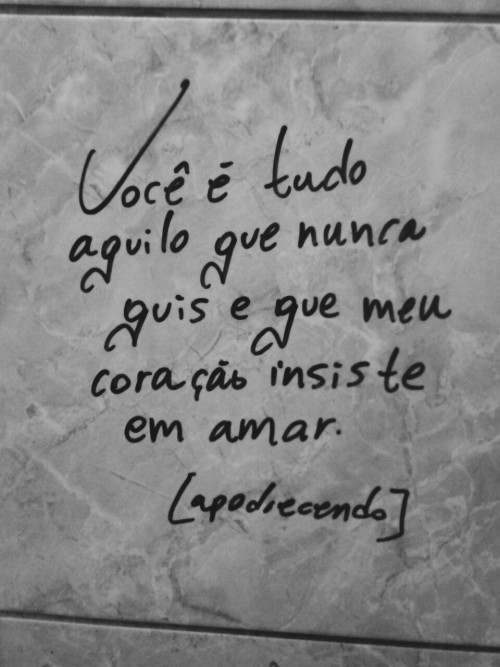 Você é tudo
aquilo que nunca
quis e que meu
coração insiste
em amar.
[apodrecendo]